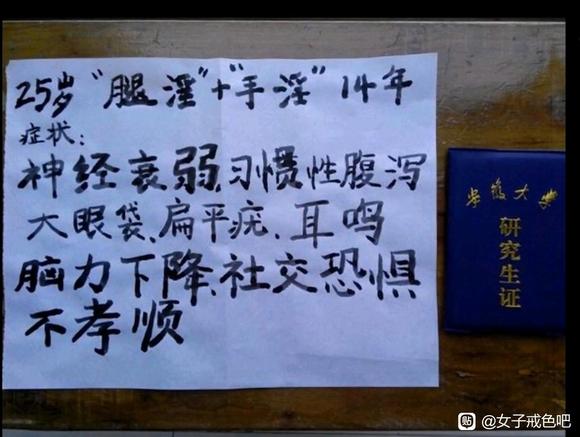 25岁“腿淫”+“手淫”14年
症状:
神经衰弱、习惯性腹泻
大眼袋、扁平疣、耳鸣
脑力下降、社交恐惧
不孝顺
安徽大学
研究生证
贴 @女子戒色吧